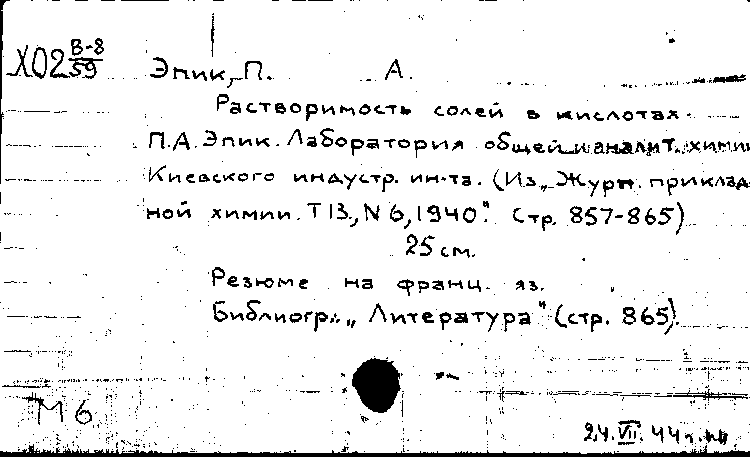 Х02 В-8/59 Эпик, П. А.
Растворимость солей в кислотах.
П.А. Эпик. Лаборатория общей и аналит. химии
Киевского индустр. ин-та. (Из „Журн. приклад-
ной химии. Т 13, N 6, 1940." Стр. 857-865)
25 см.
Резюме на франц. яз.
Библиогр.: „Литература" (стр. 865).
М 6
24. VII. 44 г.